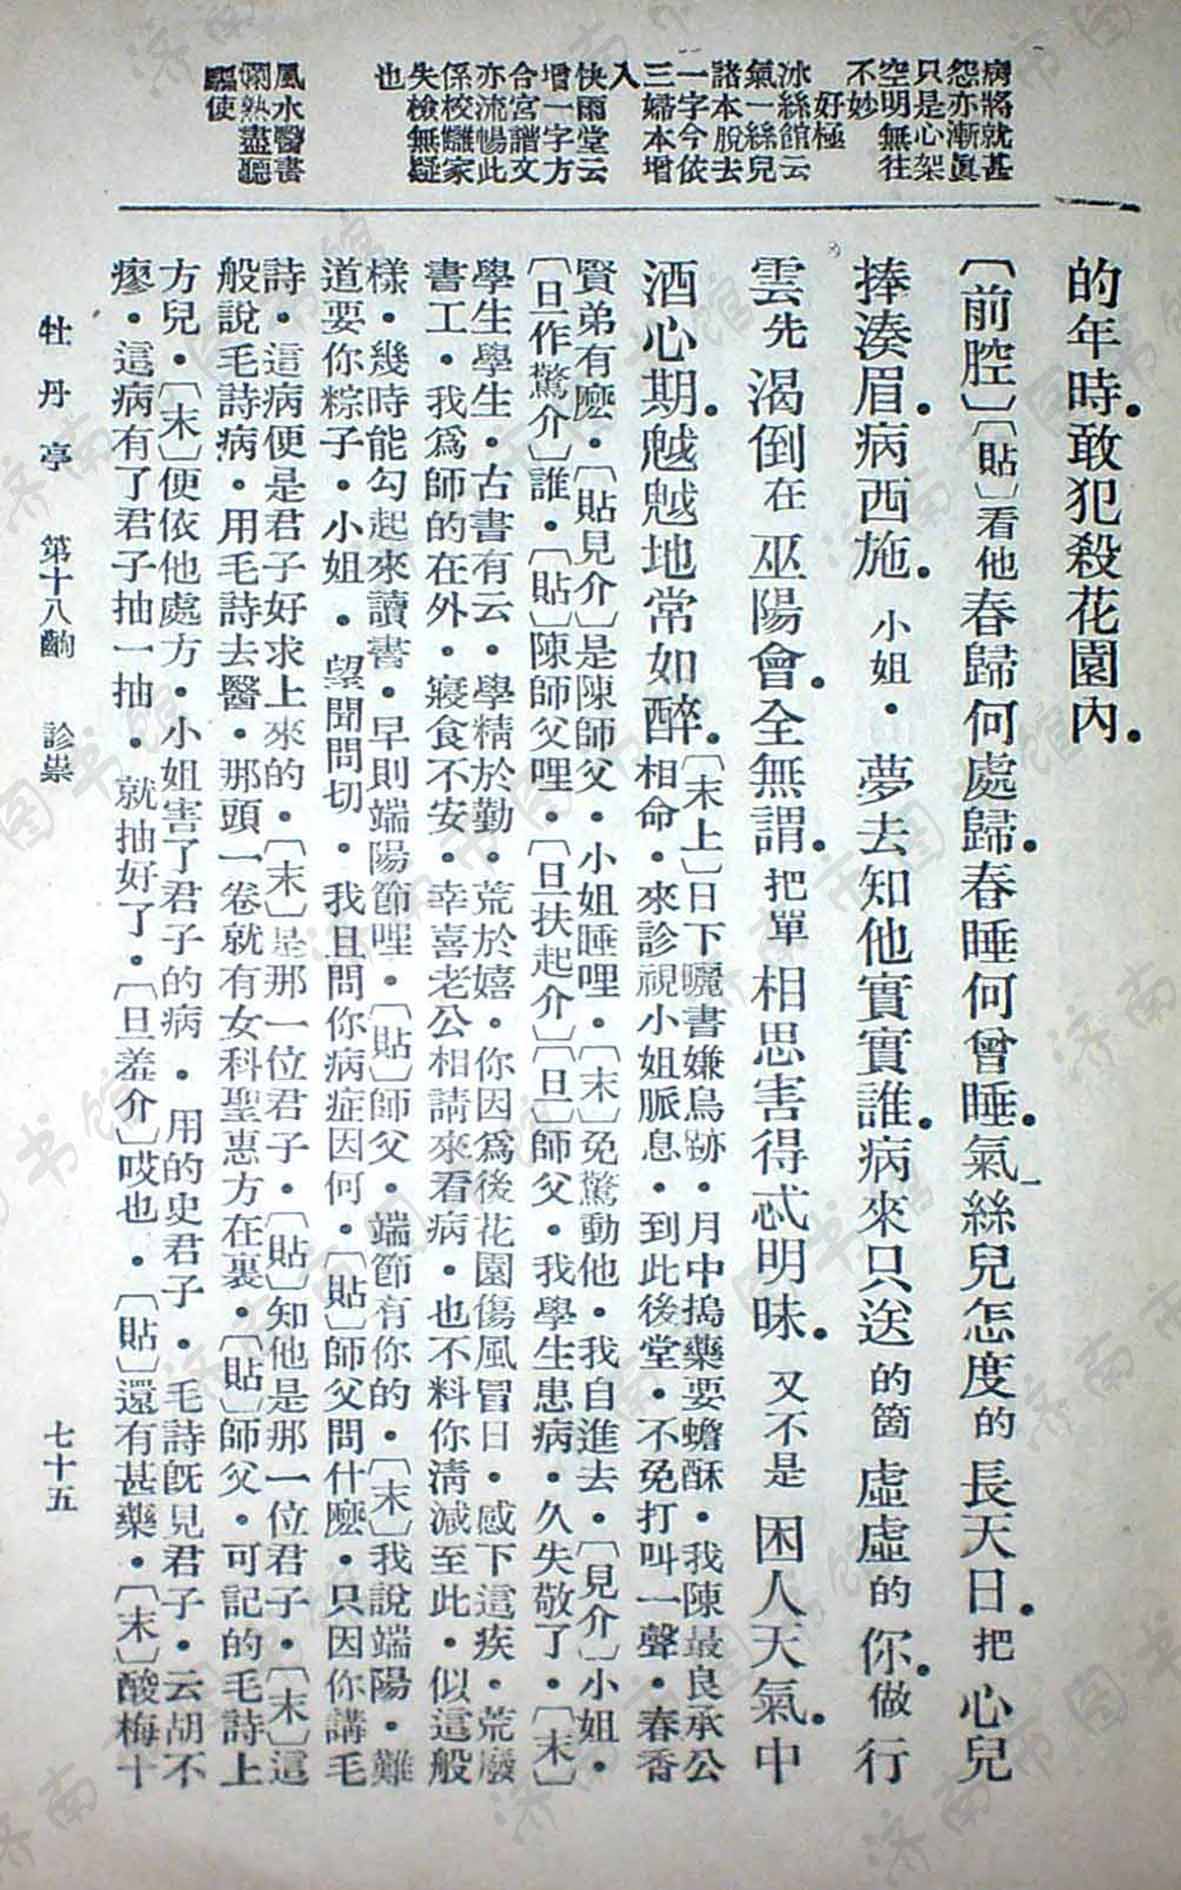 病將就甚
怨亦漸眞
只是心架
空明無往
不妙
好極
冰絲館云
氣一絲兒
諸本脫去
一字今依
三婦本增
入
快雨堂云
增一字方
合宮譜文
亦流暢此
係校讎家
失檢無疑
也
風水醫書
爛熟盡聽
驅使
的年時．敢犯殺花園內．
〔前腔〕〔貼〕看他春歸何處歸．春睡何曾睡．氣絲兒怎度的長天日．把心兒
捧湊眉．病西施．小姐．夢去知他實實誰．病來只送的箇虛虛的你．做行
雲先渴倒在巫陽會．全無謂．把單相思害得忒明昧．又不是困人天氣．中
酒心期．魆魆地常如醉．〔末上〕日下曬書嫌鳥跡．月中搗藥要蟾酥．我陳最良承公
相命．來診視小姐脈息．到此後堂．不免打叫一聲．春香
賢弟有麽．〔貼見介〕是陳師父．小姐睡哩．〔末〕免驚動他．我自進去．〔見介〕小姐．
〔旦作驚介〕誰．〔貼〕陳師父哩．〔旦扶起介〕〔旦〕師父．我學生患病．久失敬了．〔末〕
學生學生．古書有云．學精於勤．荒於嬉．你因爲後花園傷風冒日．感下這疾．荒廢
書工．我爲師的在外．寢食不安．幸喜老公相請來看病．也不料你淸減至此．似這般
樣．幾時能勾起來讀書．早則端陽節哩．〔貼〕師父．端節有你的．〔末〕我說端陽．難
道要你粽子．小姐．望聞問切．我且問你病症因何．〔貼〕師父問什麽．只因你講毛
詩．這病便是君子好求上來的．〔末〕是那一位君子．〔貼〕知他是那一位君子．〔末〕這
般說毛詩病．用毛詩去醫．那頭一卷就有女科聖惠方在裏．〔貼〕師父．可記的毛詩上
方兒．〔末〕便依他處方．小姐害了君子的病．用的史君子．毛詩旣見君子．云胡不
瘳．這病有了君子抽一抽．就抽好了．〔旦羞介〕哎也．〔貼〕還有甚藥．〔末〕酸梅十
牡丹亭　第十八齣　診祟　七十五